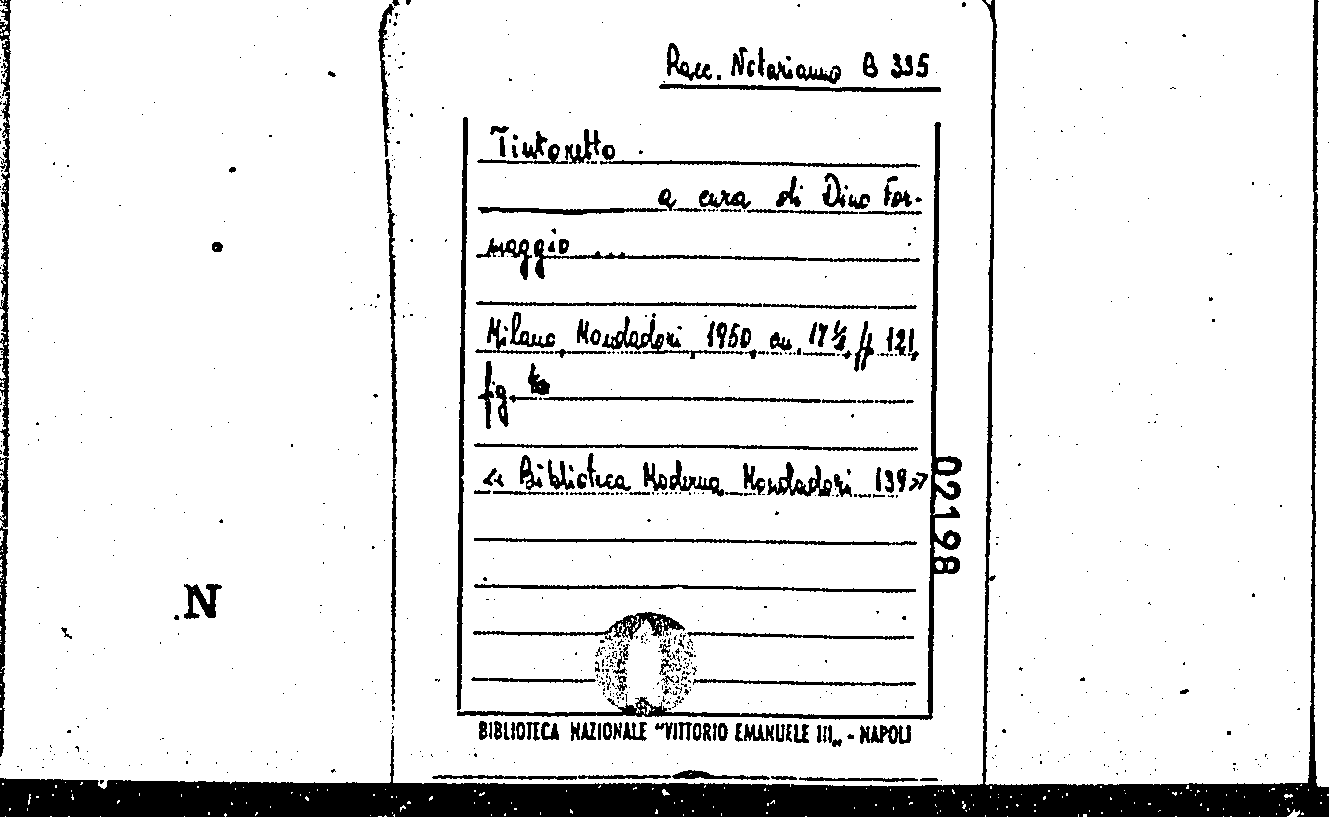 Racc. Notarianno B 335
Tintoretto
a cura di Dino For-
maggio ...
Milano, Mondadori, 1950, cm. 17 ½, ff 121,
fig.
<< Biblioteca Moderna Mondadori 139>>
02198
N
BIBLIOTECA NAZIONALE "VITTORIO EMANUELE III„ - NAPOLI